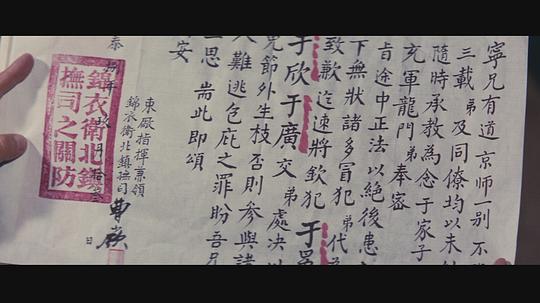 寧兄有道京师一别不
三載弟及同僚均以未
隨時承教為念于家子
充軍龍門弟奉容
旨途中正法以絕後患
下無狀諸多冒犯弟代
致歉迄速將欽犯
于欣于廣交弟處决以
免節外生枝否則參與諸
人難逃包庇之罪盼吾兄
三思耑此即頌
安
東厰指揮兼領
錦衣衛北鎮撫司
日
泰
錦衣衛北鎮
撫司之關防